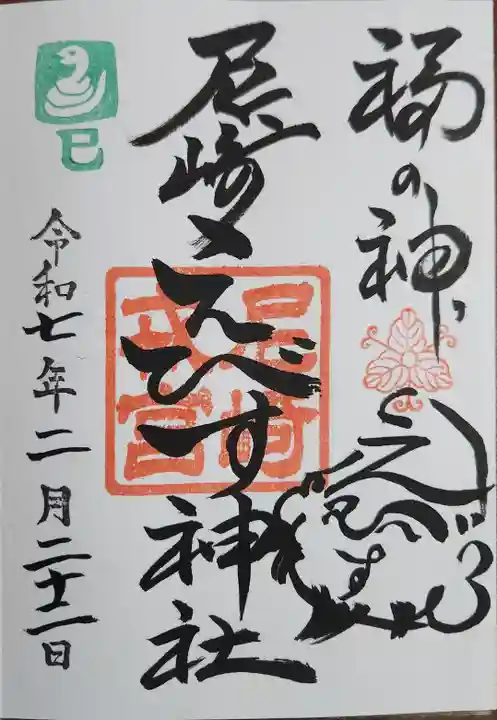 福の神
えびす
尼崎えびす神社
尼崎
戎宮
巳
令和七年二月二十二日